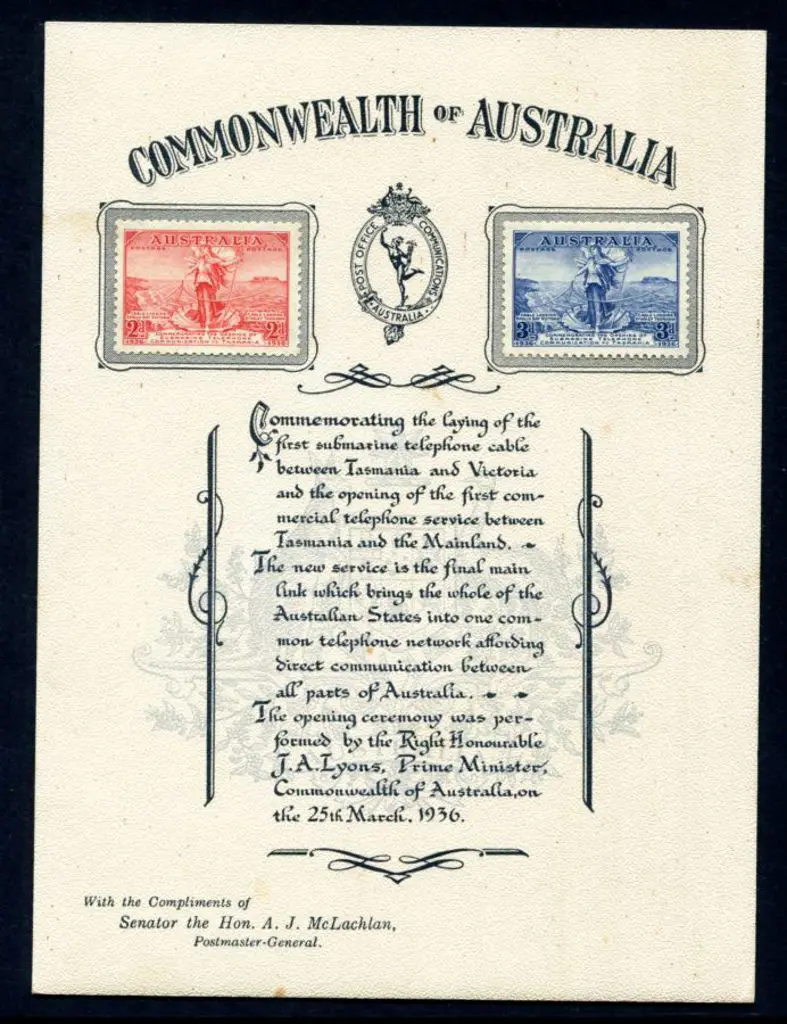 COMMONWEALTH OF AUSTRALIA
AUSTRALIA
POSTAGE POSTAGE
2d 2d
1936 1936
COMMEMORATING THE OPENING OF
SUBMARINE TELEPHONE
COMMUNICATION TO TASMANIA
POST OFFICE COMMUNICATIONS
AUSTRALIA
AUSTRALIA
POSTAGE POSTAGE
3d 3d
1936 1936
COMMEMORATING THE OPENING OF
SUBMARINE TELEPHONE
COMMUNICATION TO TASMANIA
Commemorating the laying of the
first submarine telephone cable
between Tasmania and Victoria
and the opening of the first com-
mercial telephone service between
Tasmania and the Mainland.
The new service is the final main
link which brings the whole of the
Australian States into one com-
mon telephone network affording
direct communication between
all parts of Australia.
The opening ceremony was per-
formed by the Right Honourable
J.A.Lyons, Prime Minister,
Commonwealth of Australia, on
the 25th March, 1936.
With the Compliments of
Senator the Hon. A. J. McLachlan,
Postmaster-General.